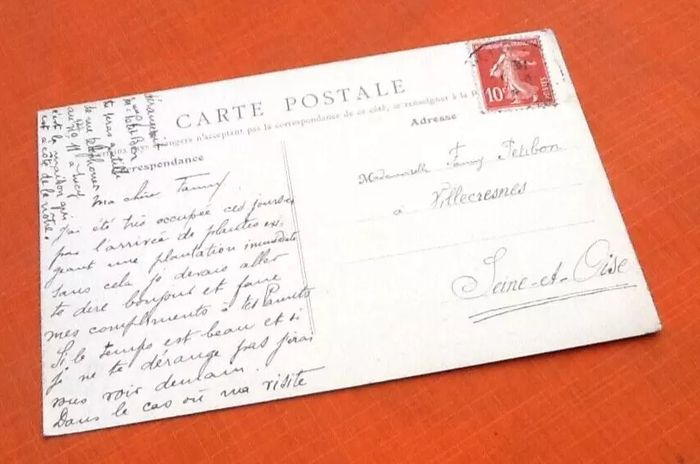 CARTE POSTALE
pays étrangers n'acceptant pas la correspondance de ce côté, se renseigner à la
Correspondance
Adresse
10c
Mademoiselle Fanny Petibon
à Villecresnes
Seine-et-Oise
Ma chère Fanny
J'ai été très occupée ces jours
par l'arrivée de plantes exi-
geant une plantation immédiate
sans cela je devais aller
te dire bonjour et faire
mes compliments à tes Parents
Si le temps est beau et si
je ne te dérange pas j'irai
vous voir demain.
Dans le cas où ma visite
dérangerait
tu seras gentille
de me téléphoner
au No 11 à
c'est la maison qui
est à côté de la nôtre.